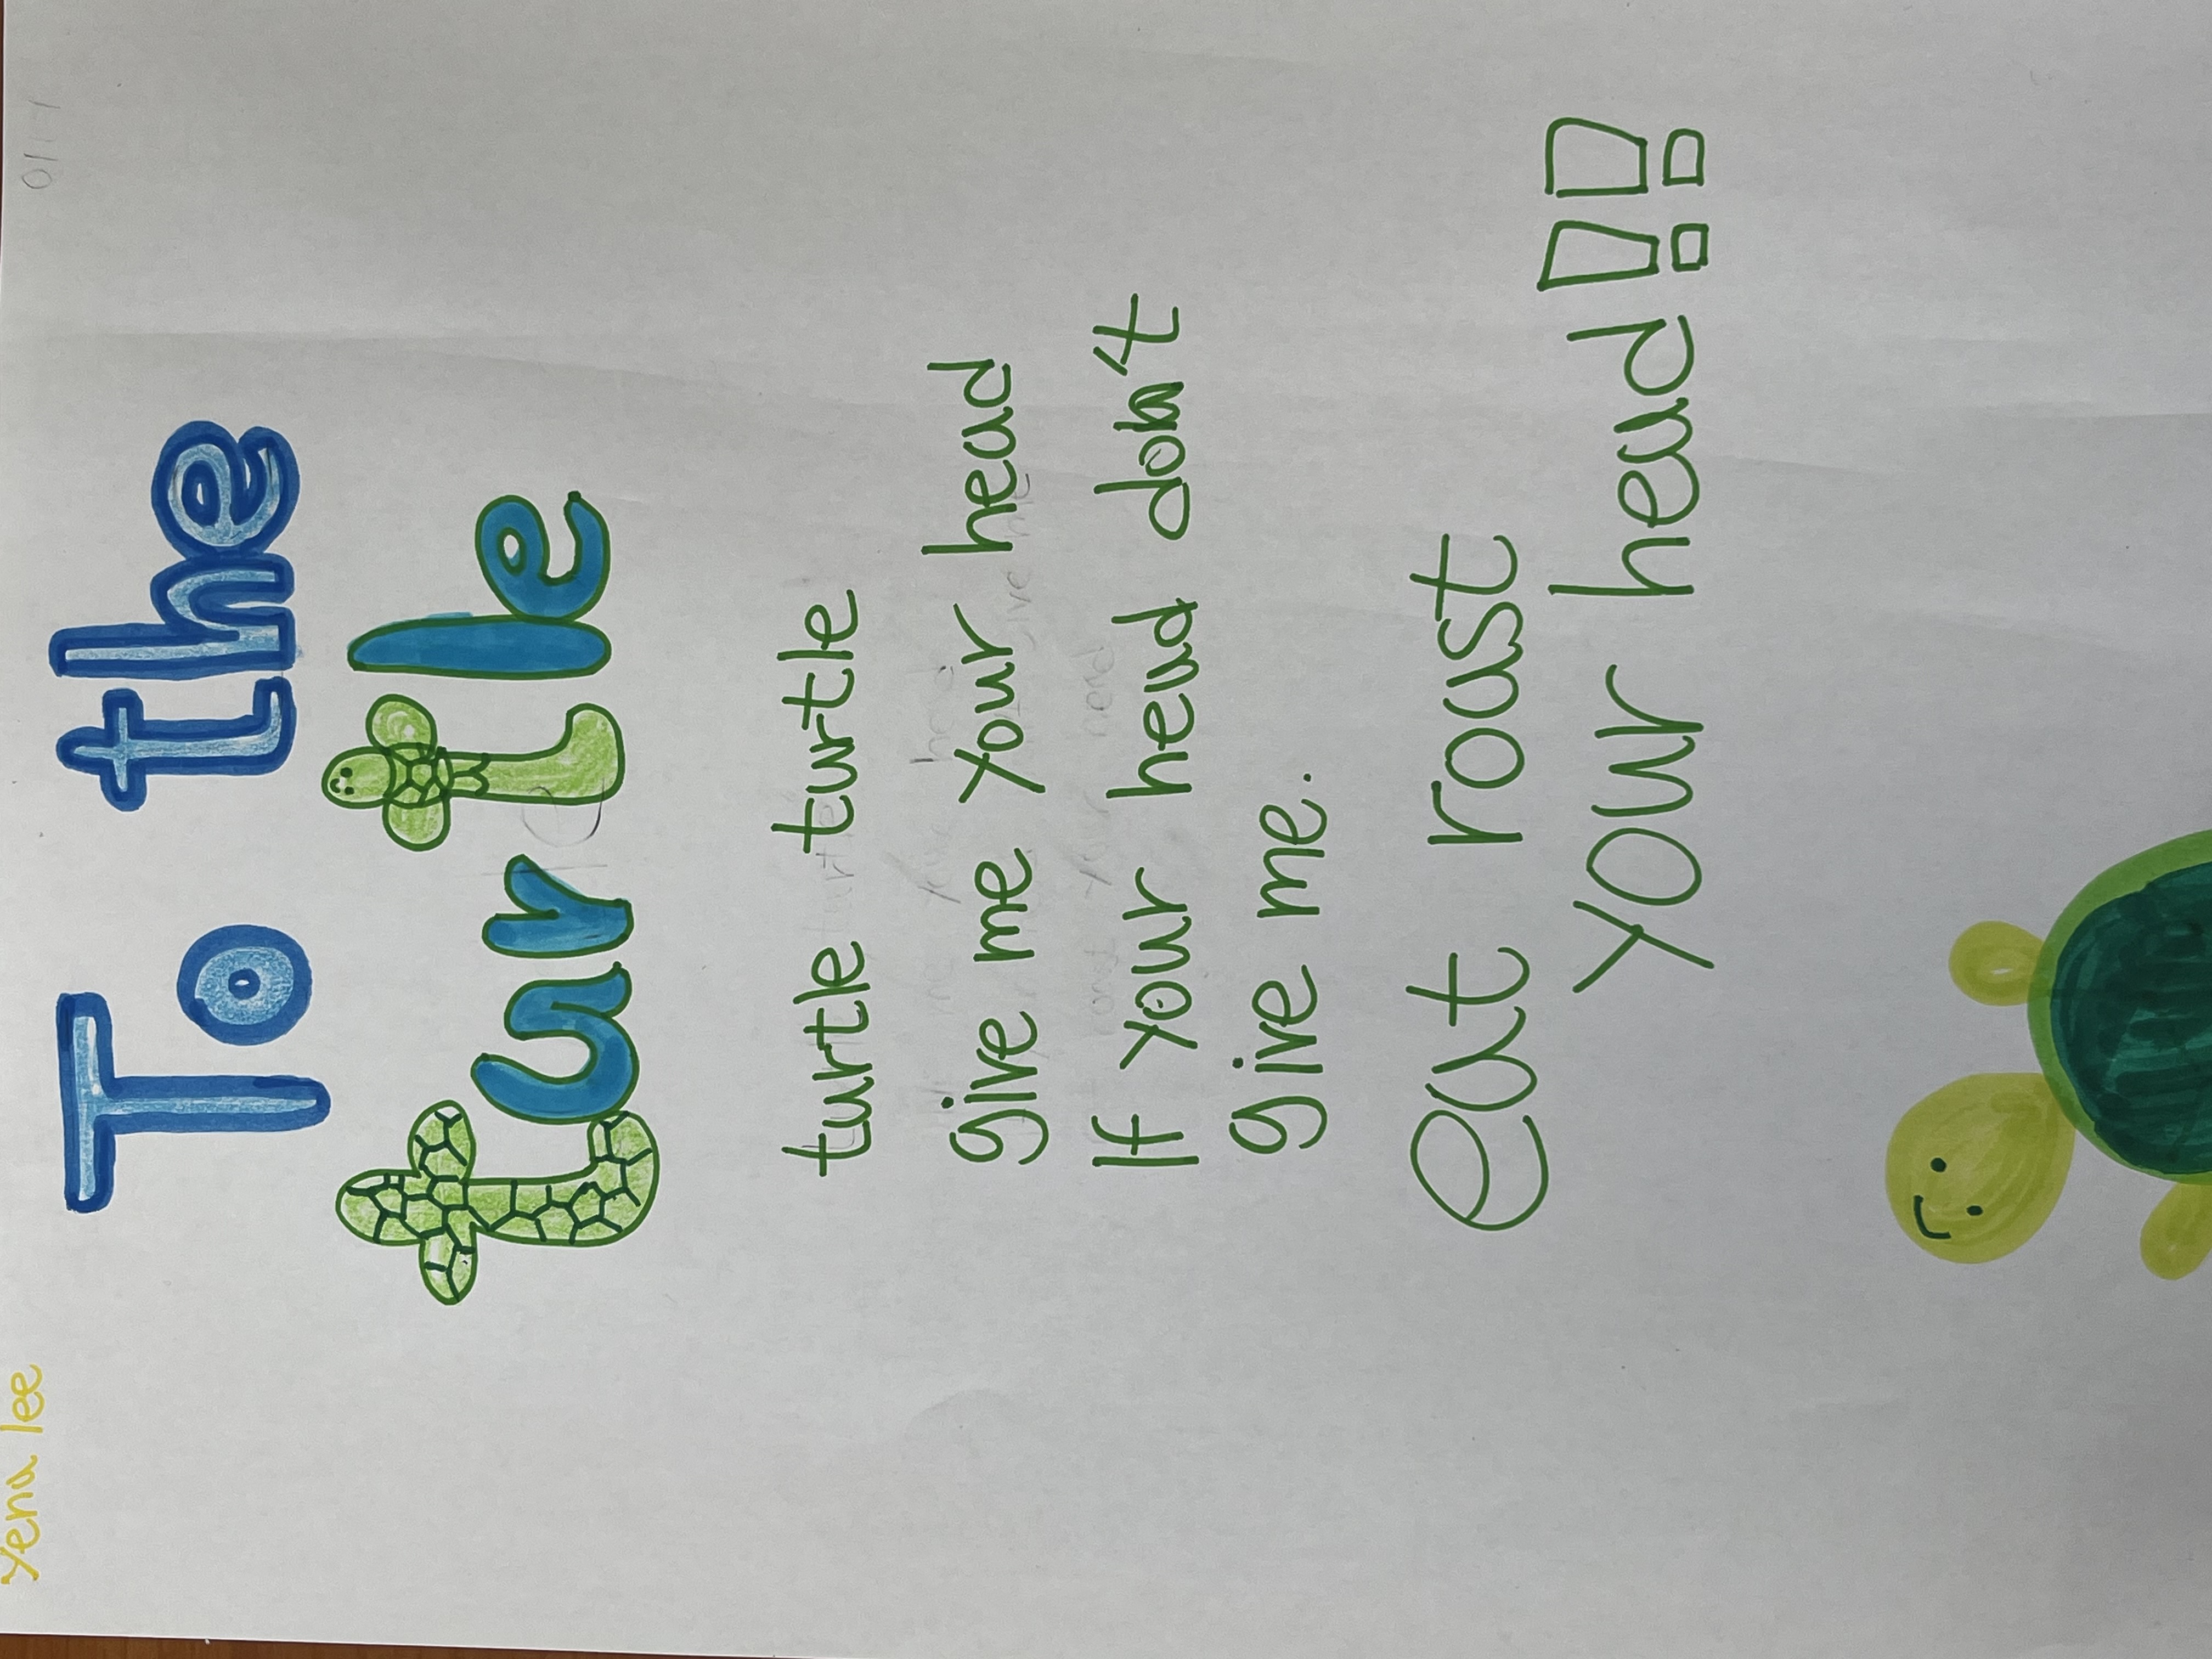 Yena lee
To the
turtle
turtle turtle
give me your head
If your head don't
give me.
eat roast
your head!!